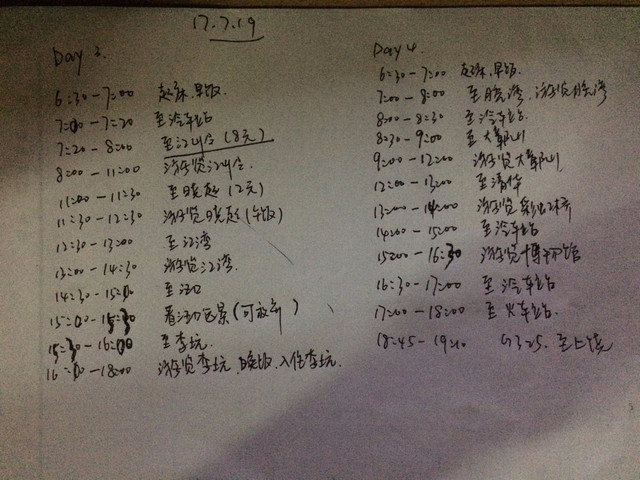 17.7.19
Day 3.
6:30-7:00 起床.早饭.
7:00-7:20 至汽车站
7:20-8:00 至江岭(8元)
8:00-11:00 游览江岭
11:00-11:30 至晓起(2元)
11:30-12:30 游览晓起(午饭)
12:30-13:00 至江湾
13:00-14:30 游览江湾.
14:30-15:00 至汪口
15:00-15:30 看汪口远景(可放弃)
15:30-16:00 至李坑.
16:00-18:00 游览李坑,晚饭,入住李坑.
Day 4.
6:30-7:00 起床.早饭.
7:00-8:00 至月亮湾,游览月亮湾
8:00-8:30 至汽车站.
8:30-9:00 至大鄣山
9:00-12:00 游览大鄣山
12:00-13:00 至清华
13:00-14:00 游览彩虹桥
14:00-15:00 至汽车站
15:00-16:30 游览博物馆
16:30-17:00 至汽车站
17:00-18:00 至火车站.
18:45-19:10 G325.至上饶